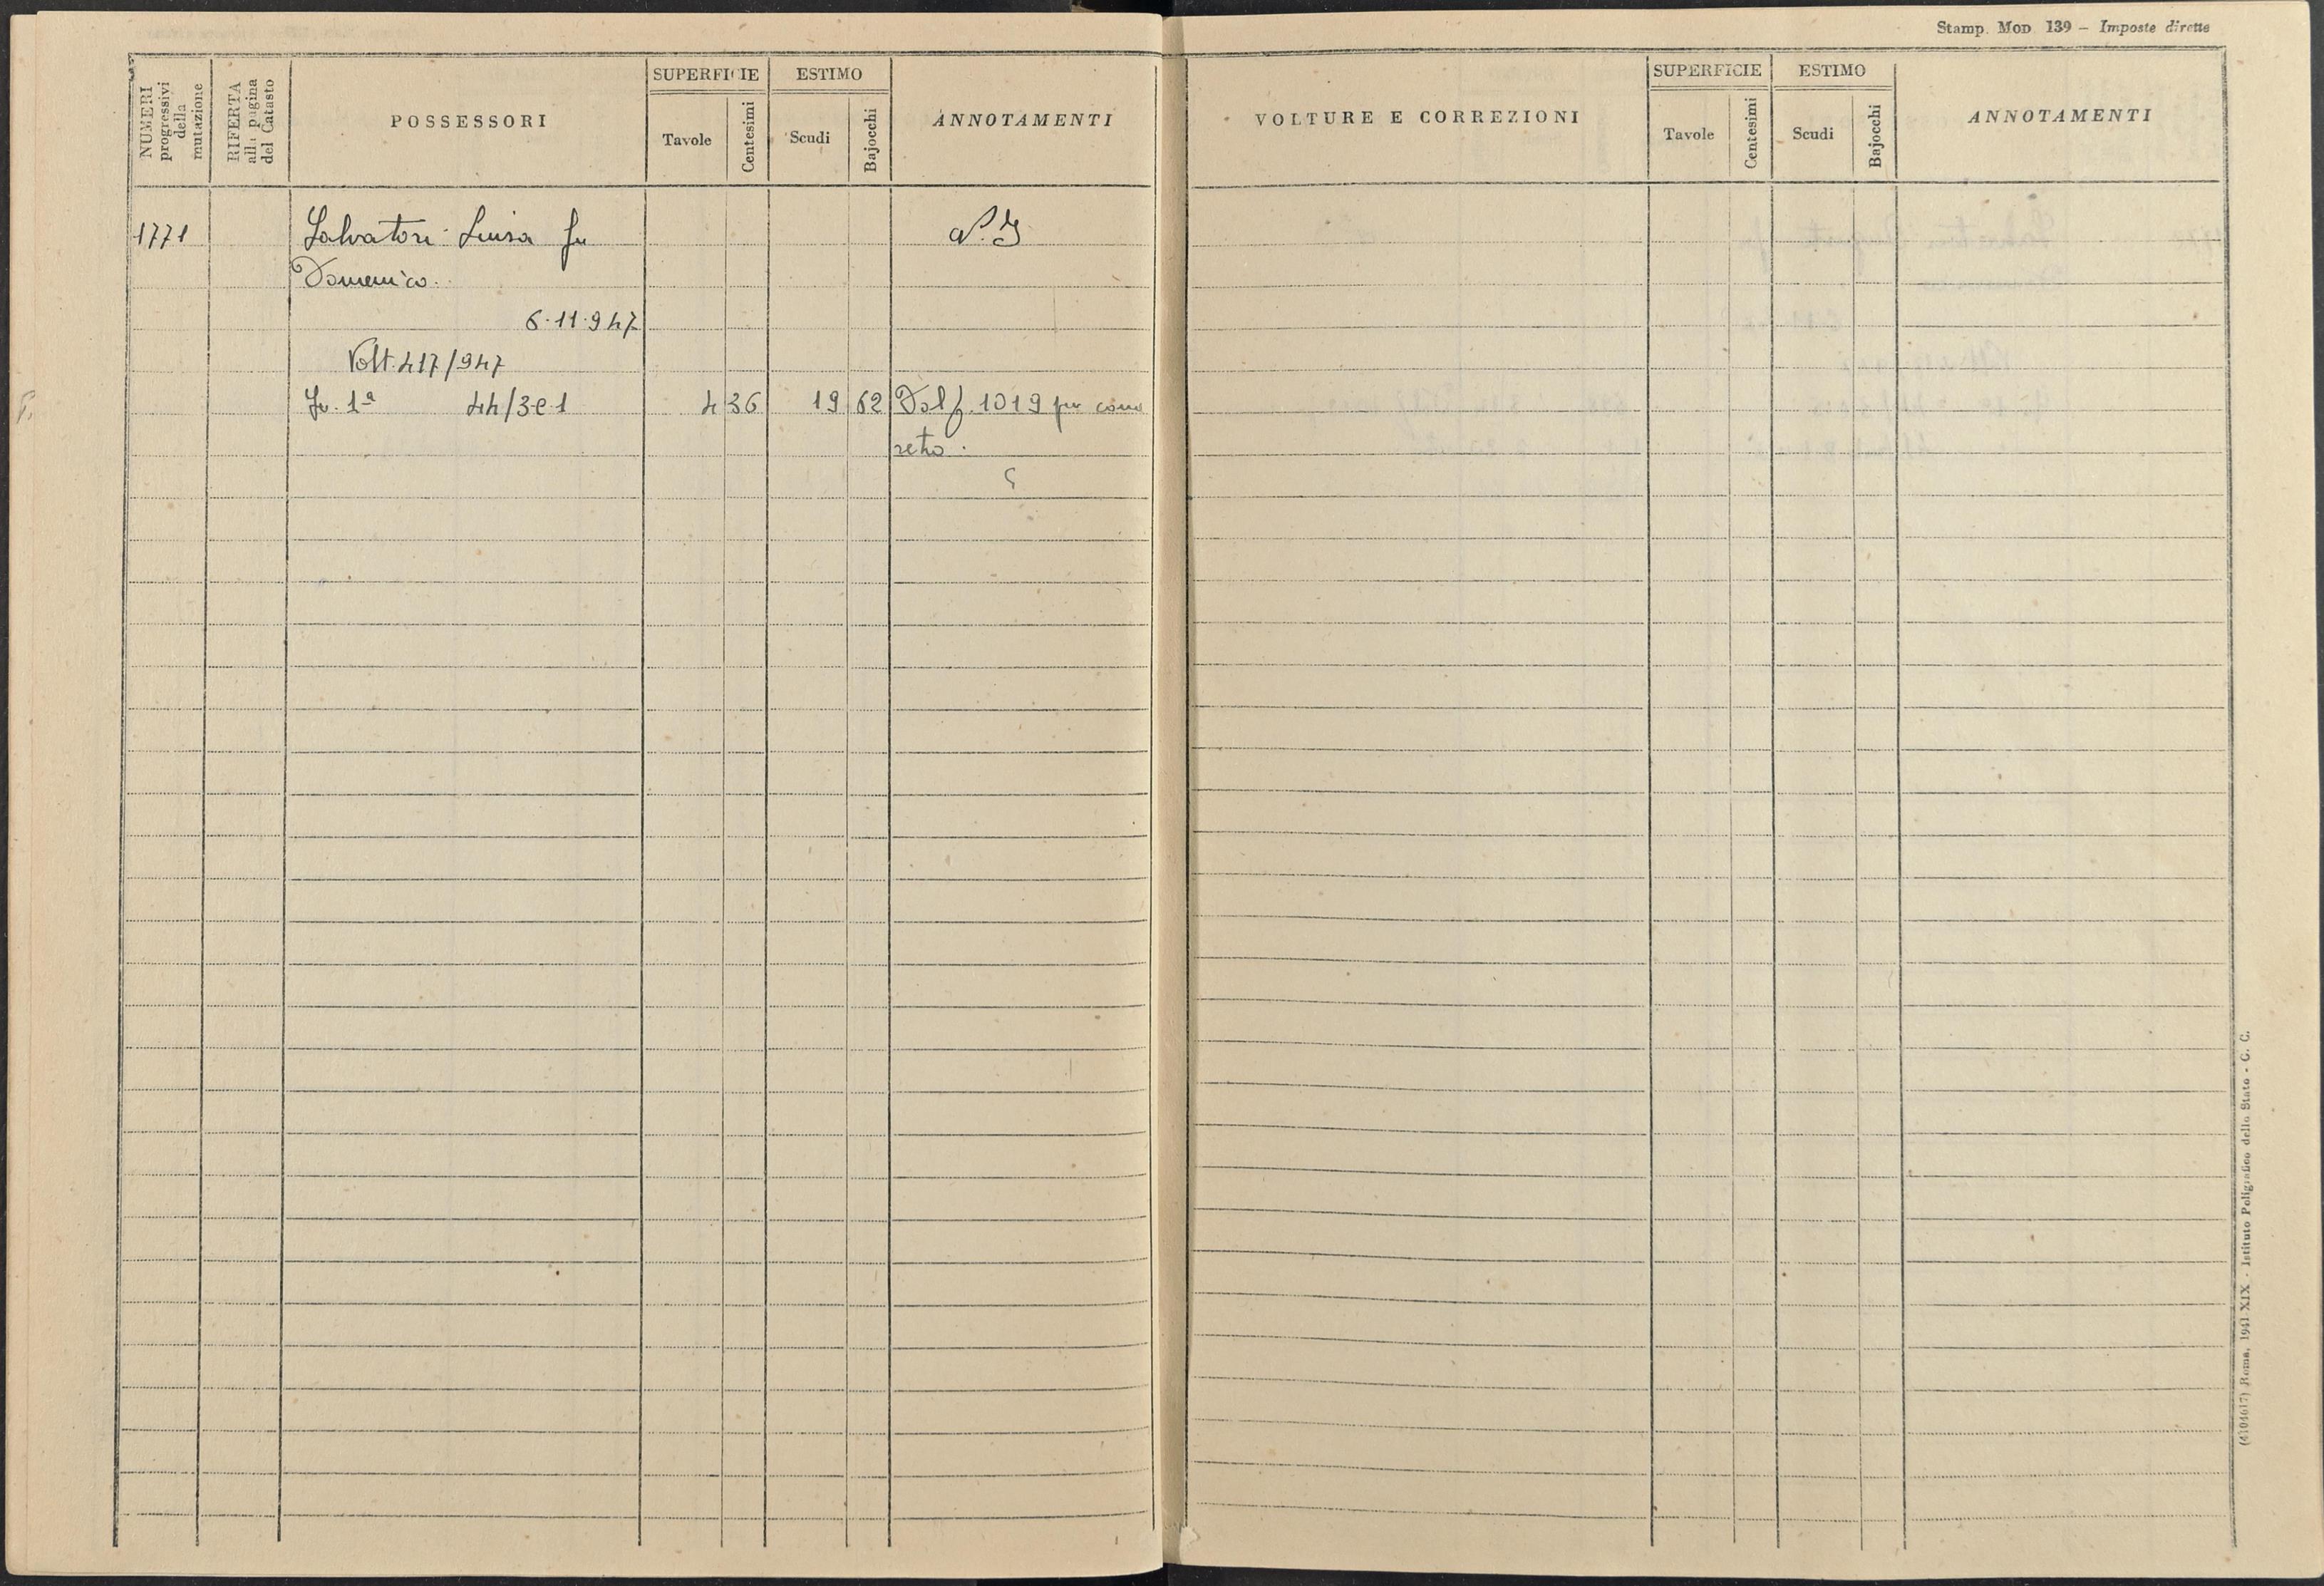 Stamp. Mod. 139 – Imposte dirette
NUMERI progressivi della mutazione
RIFERTA alla pagina del Catasto
POSSESSORI
SUPERFICIE
Tavole
Centesimi
ESTIMO
Scudi
Bajocchi
ANNOTAMENTI
VOLTURE E CORREZIONI
SUPERFICIE
Tavole
Centesimi
ESTIMO
Scudi
Bajocchi
ANNOTAMENTI
1771 Salvatori Luisa fu
Domenico.
6.11.947
Volt. 417/947
1ª 44/3e1 4 36 19 62 Dal f. 1019 per com
(4104617) Roma, 1941 XIX - Istituto Poligrafico dello Stato - G. C.